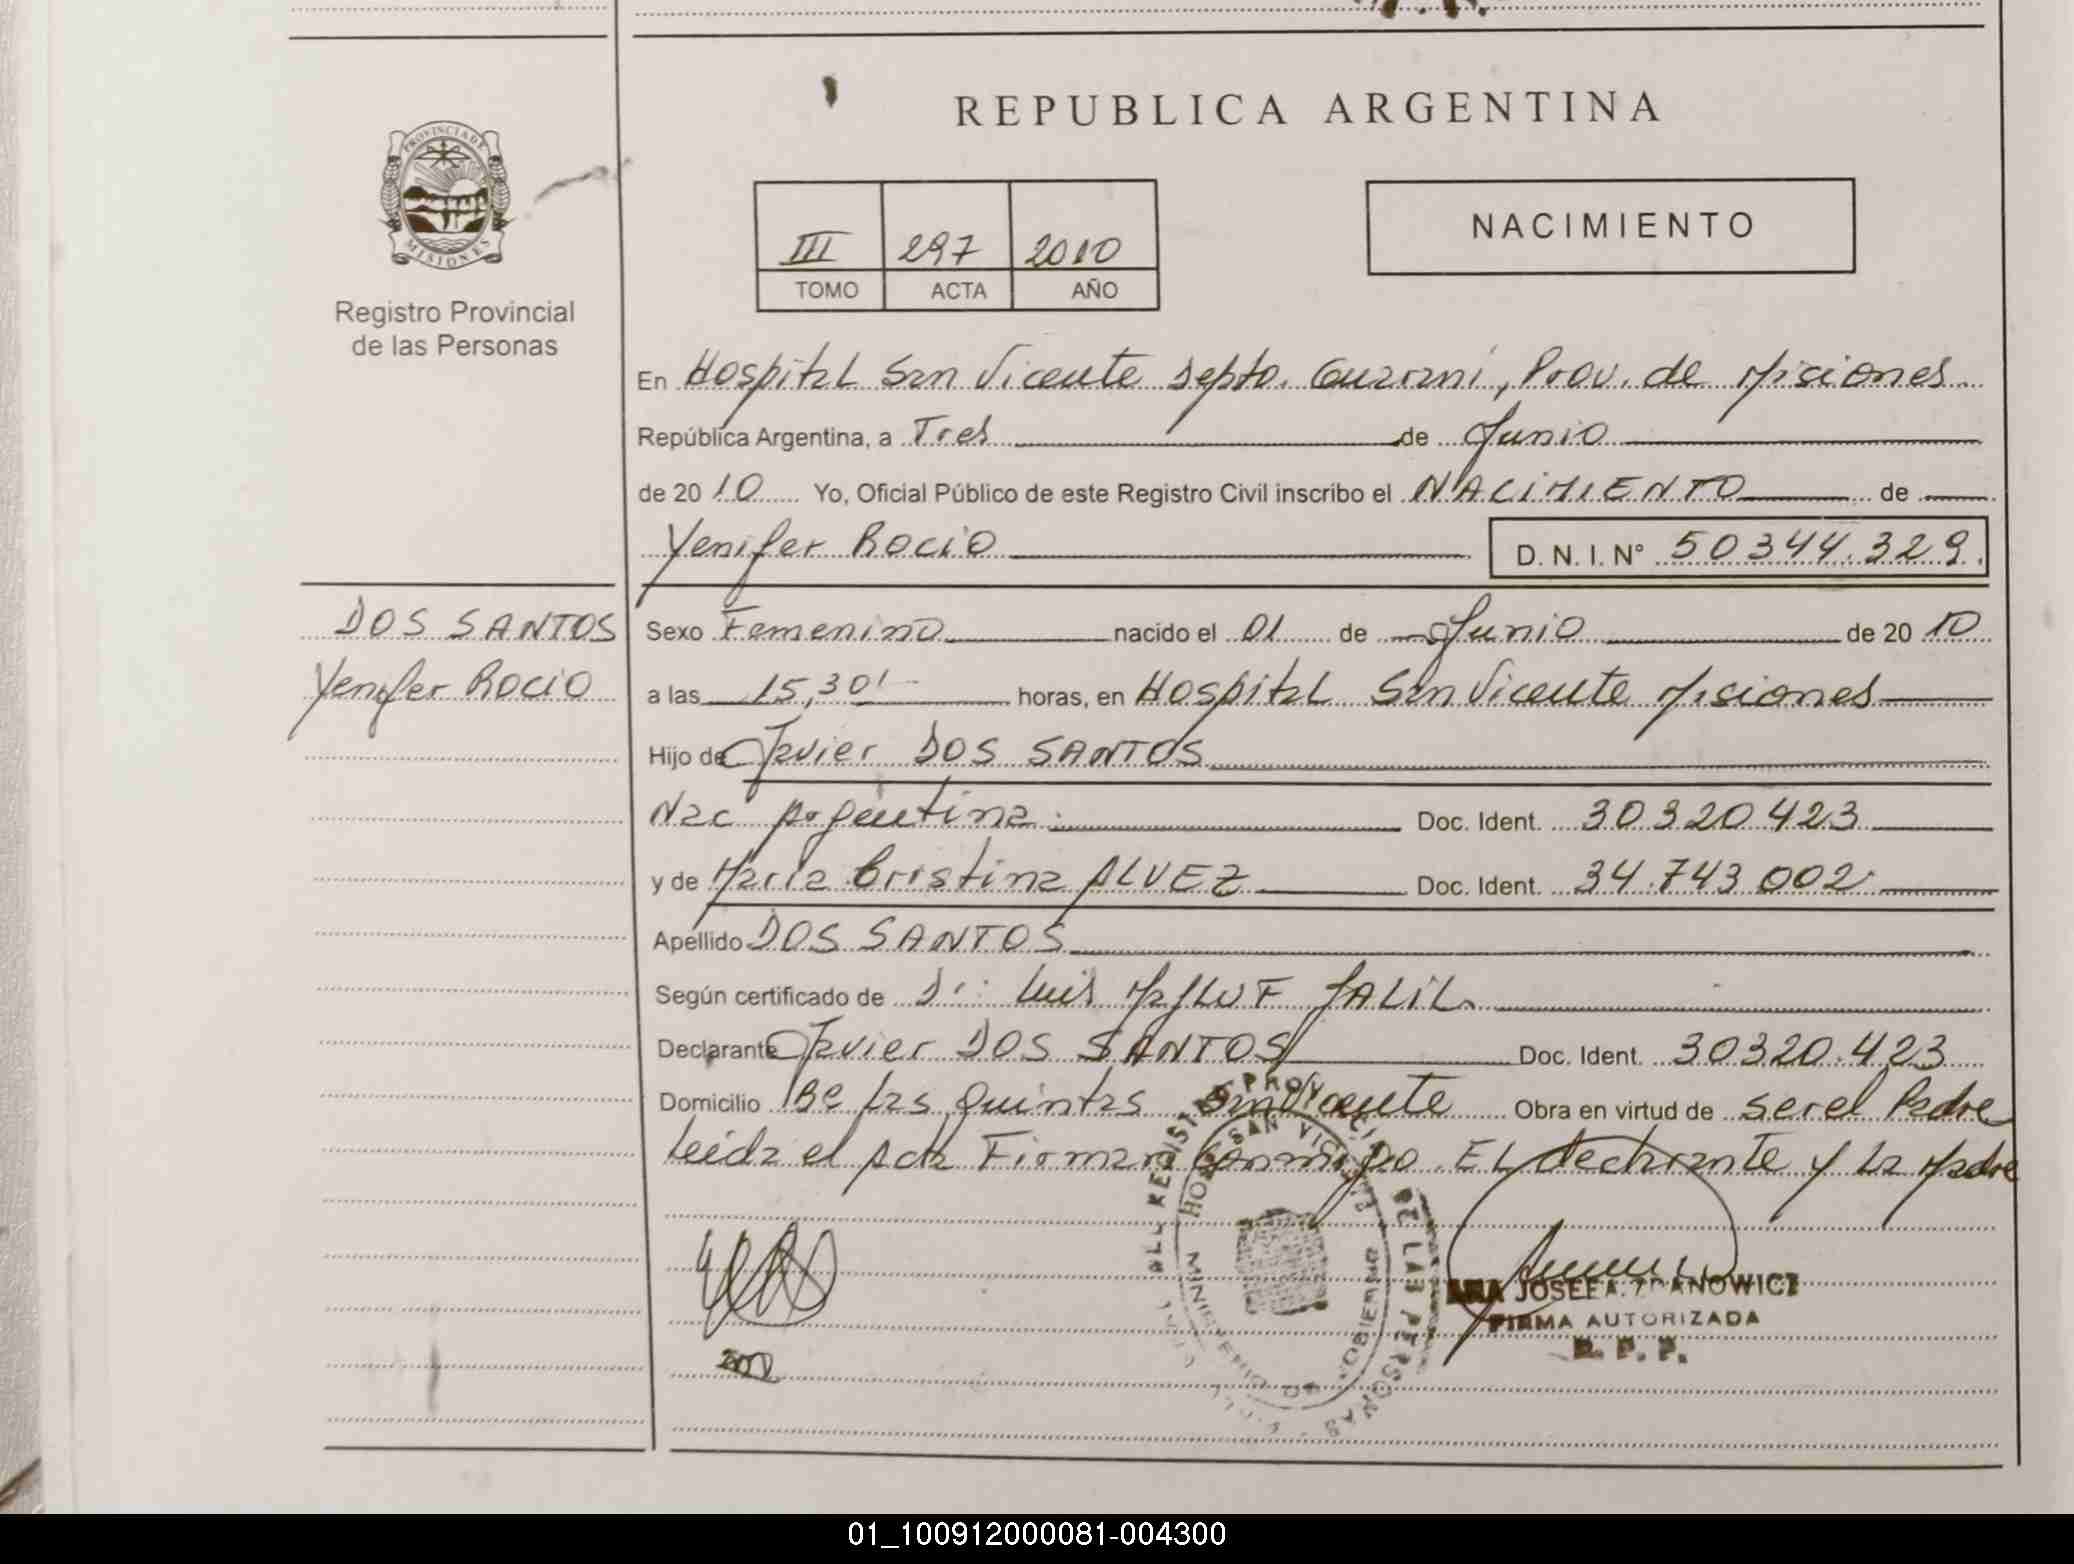 REPUBLICA ARGENTINA
PROVINCIA DE
MISIONES
Registro Provincial
de las Personas
III 297 2010
TOMO ACTA AÑO
NACIMIENTO
En Hospital San Vicente Depto. Guarani, Prov. de Misiones
República Argentina, a Tres de Junio
de 20 10 Yo, Oficial Público de este Registro Civil inscribo el NACIMIENTO de
Yenifer Rocio D. N. I. N° 50344.329.
DOS SANTOS
Yenifer Rocio
Sexo Femenino nacido el 01 de Junio de 20 10
a las 15,30' horas, en Hospital San Vicente Misiones
Hijo de Javier DOS SANTOS
Nac Argentina. Doc. Ident. 30320423
y de Maria Cristina ALVEZ Doc. Ident. 34.743.002
Apellido DOS SANTOS
Según certificado de Dr. Luis MALUF JALIL
Declarante Javier DOS SANTOS Doc. Ident. 30320.423
Domicilio Bº Las Quintas San Vicente Obra en virtud de ser el Padre
Leida el Acta Firman Conmigo EL declarante y La Madre
HOSP. SAN VICENTE
DE LAS PERSONAS
MINISTERIO DE GOBIERNO
JOSEFA
FIRMA AUTORIZADA
R. P. P.
01_100912000081-004300